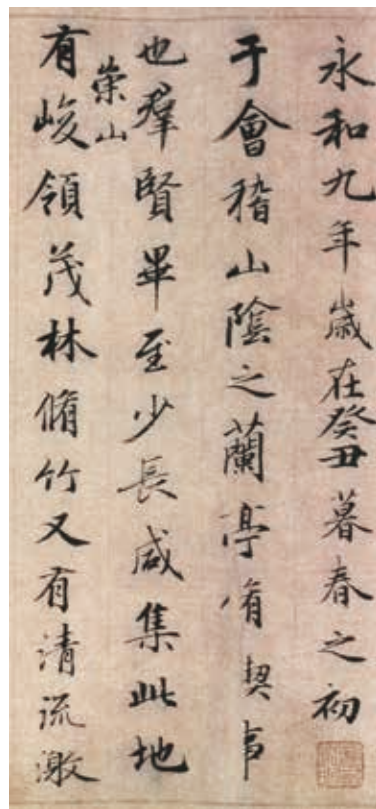 永和九年歲在癸丑暮春之初
于會稽山陰之蘭亭脩禊事
也羣賢畢至少長咸集此地
有崇山峻領茂林脩竹又有清流激